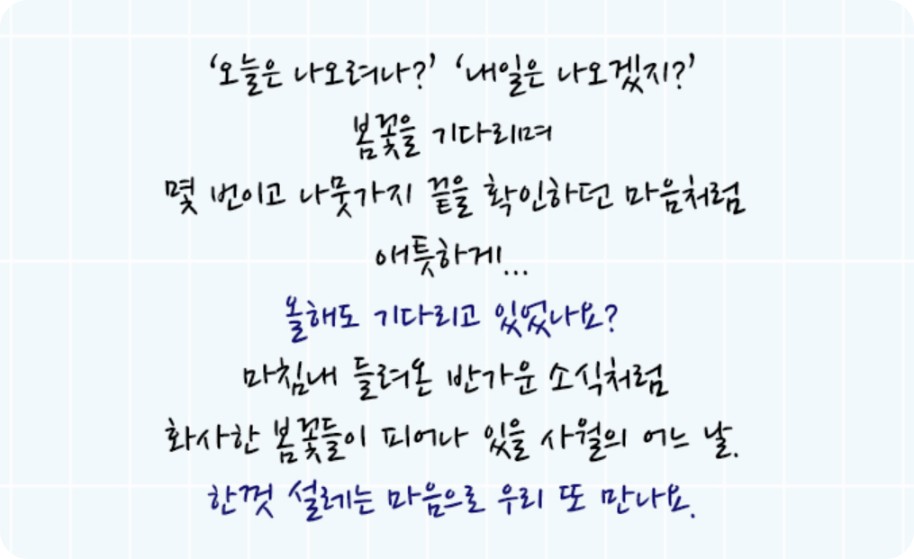 ‘오늘은 나오려나?’ ‘내일은 나오겠지?’
봄꽃을 기다리며
몇 번이고 나뭇가지 끝을 확인하던 마음처럼
애틋하게...
올해도 기다리고 있었나요?
마침내 들려온 반가운 소식처럼
화사한 봄꽃들이 피어나 있을 사월의 어느 날.
한껏 설레는 마음으로 우리 또 만나요.